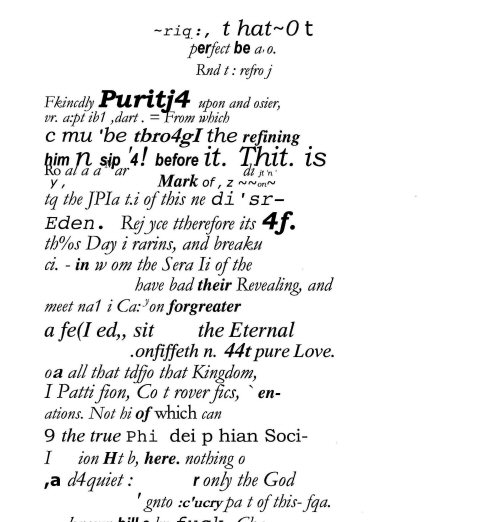 ~riq:, that~0t
perfect be a‚ o.
Rnd t : refro j
Fkincdly Puritj4 upon and osier,
vr. a:pt ib1 ,dart . = From which
c mu 'be tbro4gI the refining
him n sip '4! before it. Thit. is
Ro al a a ar di jt 'n
y , Mark of , z ~~on~
tq the JPIa t.i of this ne di'sr-
Eden. Rej yce ttherefore its 4f.
th%s Day i rarins, and breaku
ci. - in w om the Sera Ii of the
have bad their Revealing, and
meet na1 i Ca:ʸon forgreater
a fe(I ed,, sit the Eternal
.onfiffeth n. 44t pure Love.
oa all that tdfjo that Kingdom,
I Patti fion, Co t rover fics, ` en-
ations. Not hi of which can
9 the true Phi dei p hian Soci-
I ion Ht b, here. nothing o
,a d4quiet : r only the God
' gnto :c'ucry pa t of this- fqa.